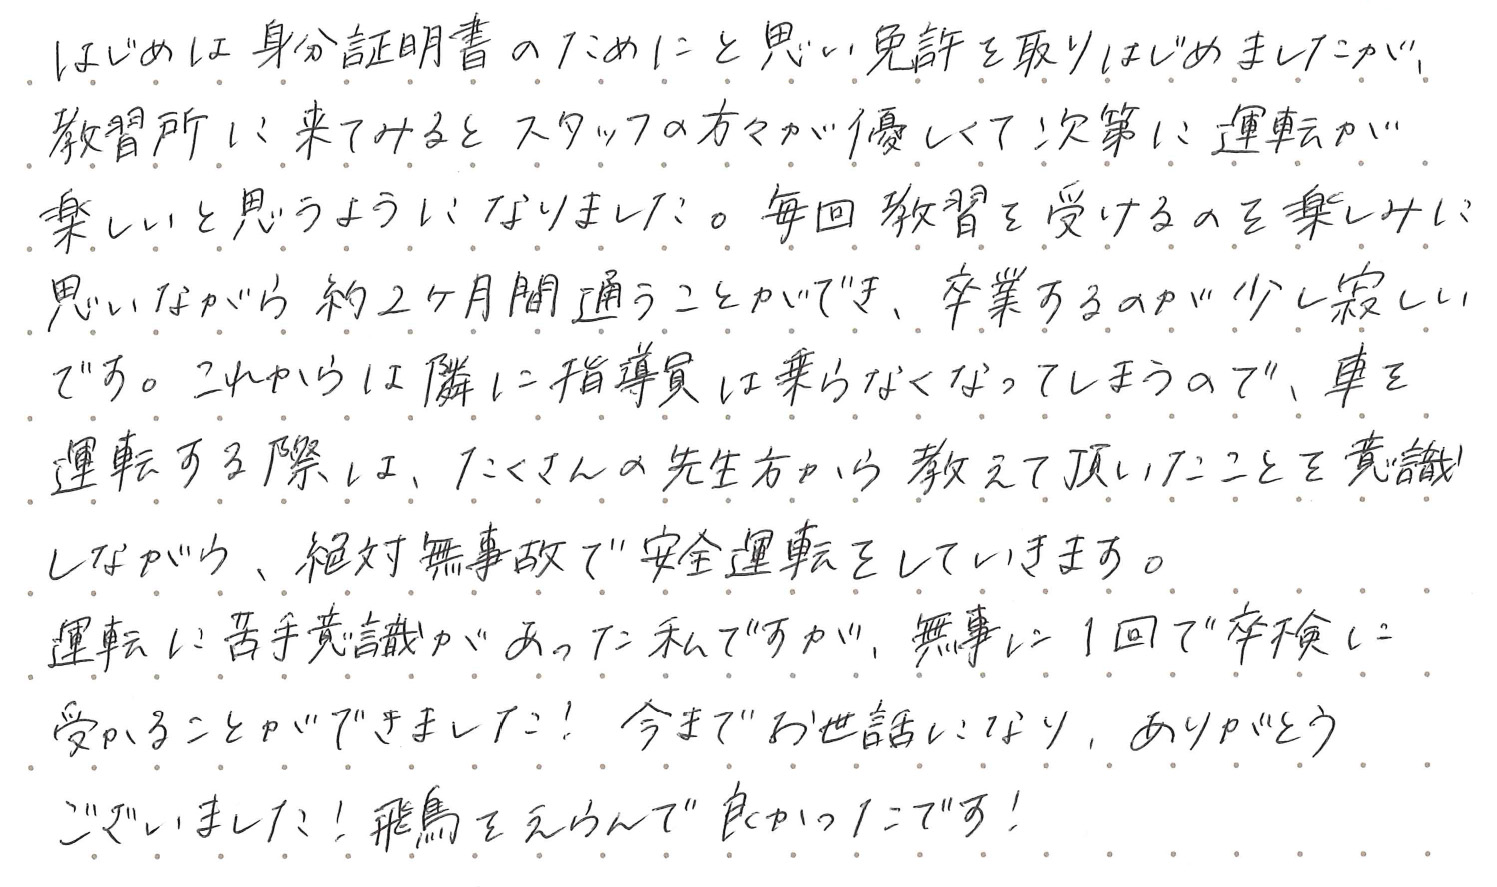 はじめは身分証明書のためにと思い免許を取りはじめましたが、
教習所に来てみるとスタッフの方々が優しくて次第に運転が
楽しいと思うようになりました。毎回教習を受けるのを楽しみに
思いながら約2ヶ月間通うことができ、卒業するのが少し寂しい
です。これからは隣に指導員は乗らなくなってしまうので、車を
運転する際は、たくさんの先生方から教えて頂いたことを意識
しながら、絶対無事故で安全運転をしていきます。
運転に苦手意識があった私ですが、無事に1回で卒検に
受かることができました!今までお世話になり、ありがとう
ございました!飛鳥をえらんで良かったです!